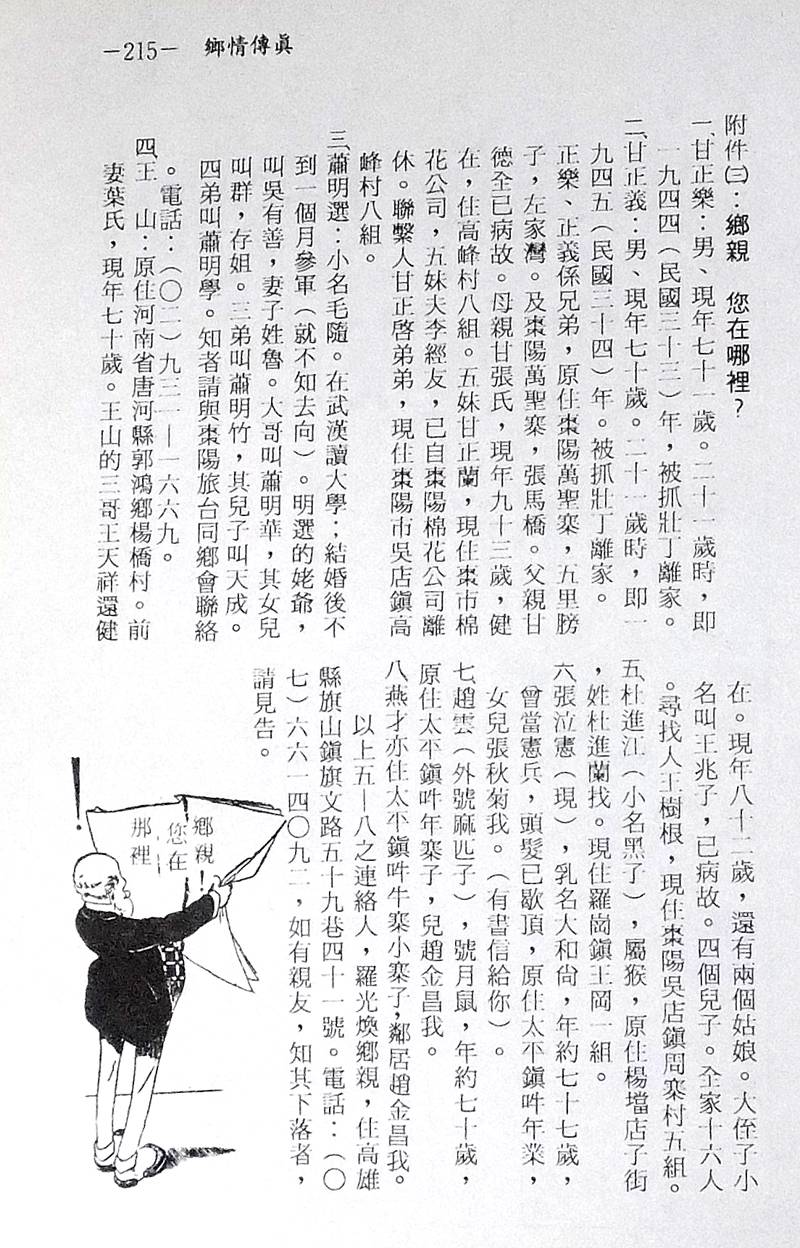 —215— 鄉情傳眞
附件㈢：鄉親　您在哪裡？
一、甘正樂：男、現年七十一歲。二十一歲時，即
一九四四（民國三十三）年，被抓壯丁離家。
二、甘正義：男、現年七十歲。二十一歲時，即一
九四五（民國三十四）年。被抓壯丁離家。
正樂、正義係兄弟，原住棗陽萬聖寨，五里膀
子，左家灣。及棗陽萬聖寨，張馬橋。父親甘
德全已病故。母親甘張氏，現年九十三歲，健
在，住高峰村八組。五妹甘正蘭，現住棗市棉
花公司，五妹夫李經友，已自棗陽棉花公司離
休。聯繫人甘正啓弟弟，現住棗陽市吳店鎭高
峰村八組。
三、蕭明選：小名毛隨。在武漢讀大學；結婚後不
到一個月參軍（就不知去向）。明選的姥爺，
叫吳有善，妻子姓魯。大哥叫蕭明華，其女兒
叫群，存姐。三弟叫蕭明竹，其兒子叫天成。
四弟叫蕭明學。知者請與棗陽旅台同鄉會聯絡
。電話：（〇二）九三一—一六六九。
四、王　山：原住河南省唐河縣郭鴻鄉楊橋村。前
妻葉氏，現年七十歲。王山的三哥王天祥還健
在。現年八十二歲，還有兩個姑娘。大侄子小
名叫王兆子，已病故。四個兒子。全家十六人
。尋找人王樹根，現住棗陽吳店鎭周寨村五組。
五、杜進江（小名黑子），屬猴，原住楊壋店子街
，姓杜進蘭找。現住羅崗鎭王岡一組。
六、張泣憲（現），乳名大和尙，年約七十七歲，
曾當憲兵，頭髮已歇頂，原住太平鎭吽年業，
女兒張秋菊我。（有書信給你）。
七、趙雲（外號麻匹子），號月鼠，年約七十歲，
原住太平鎭吽年寨子，兒趙金昌我。
八、燕才亦住太平鎭吽牛寨小寨子，鄰居趙金昌我。
以上五—八之連絡人，羅光煥鄉親，住高雄
縣旗山鎭旗文路五十九巷四十一號。電話：（〇
七）六六一四〇九二，如有親友，知其下落者，
請見告。
鄉親！
您在
那裡
！